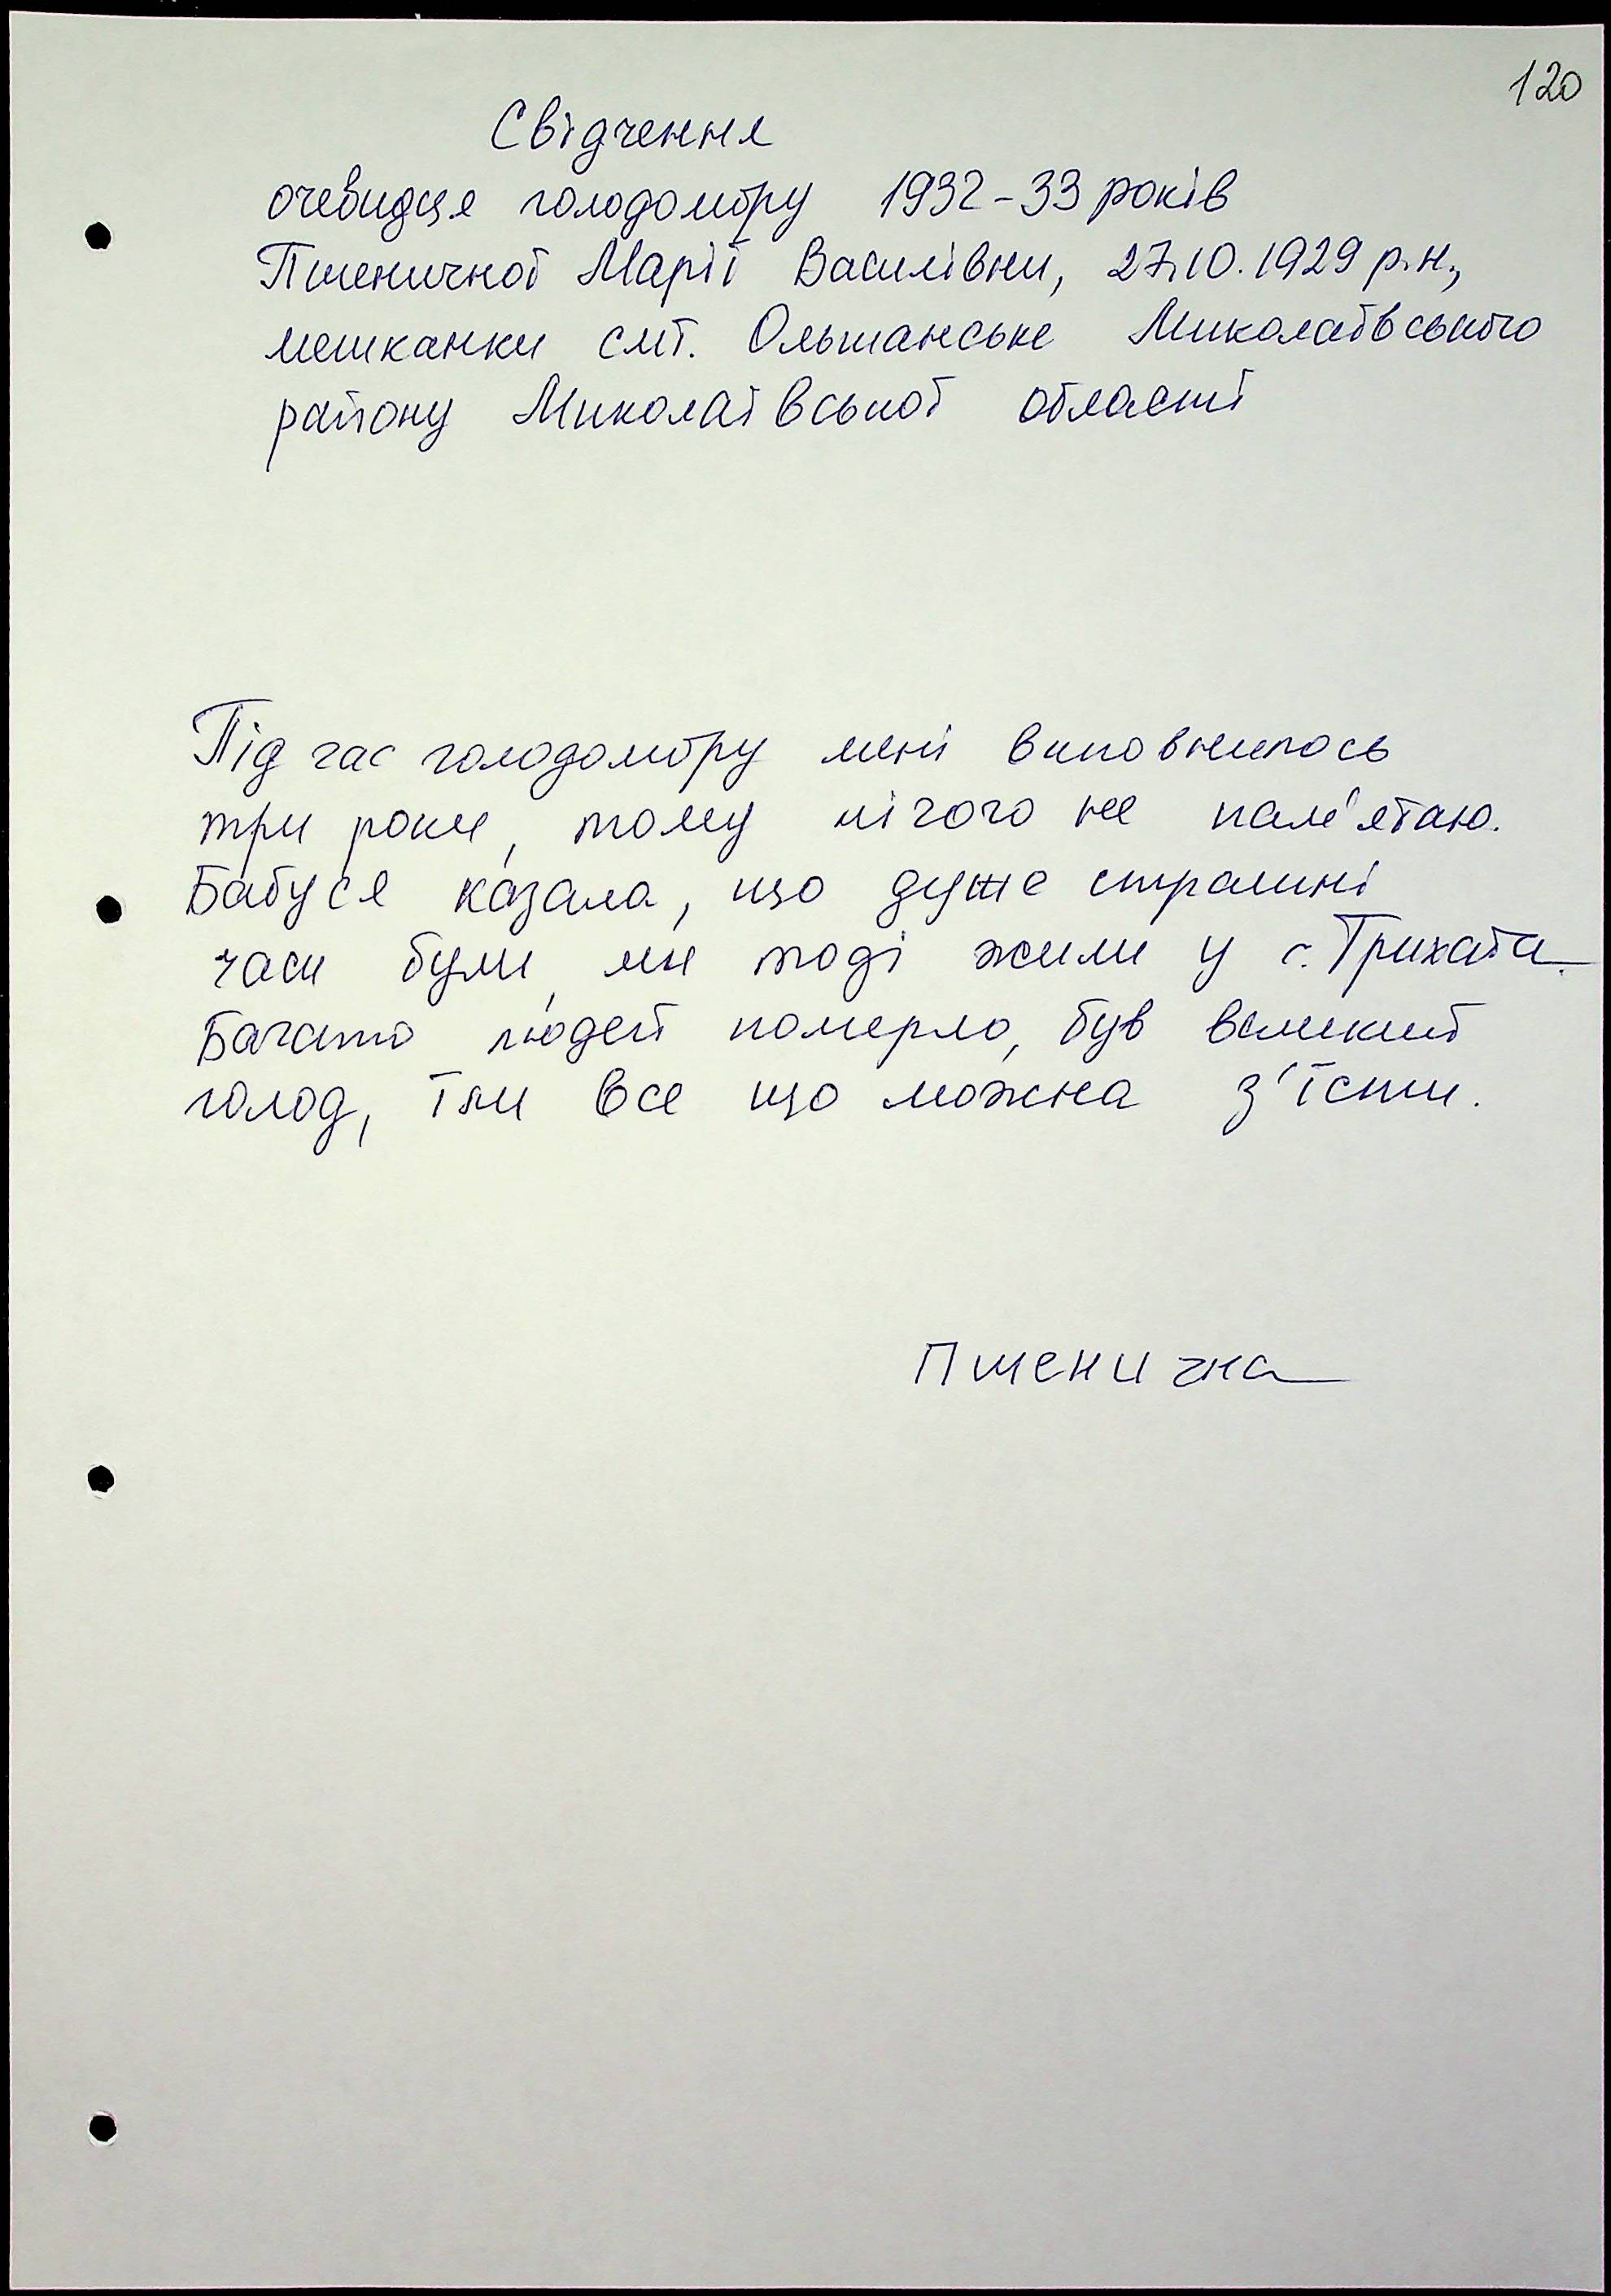 120
Свідчення
очевидця голодомору 1932-33 років
Пшеничної Марії Василівни, 27.10.1929 р.н.,
мешканки смт. Ольшанське Миколаївського
району Миколаївської області
Під час голодомору мені виповнилось
три роки, тому нічого не пам'ятаю.
Бабуся казала, що дуже страшні
часи були, ми тоді жили у с. Трихати.
Багато людей померло, був великий
голод, їли все що можна з'їсти.
Пшенична